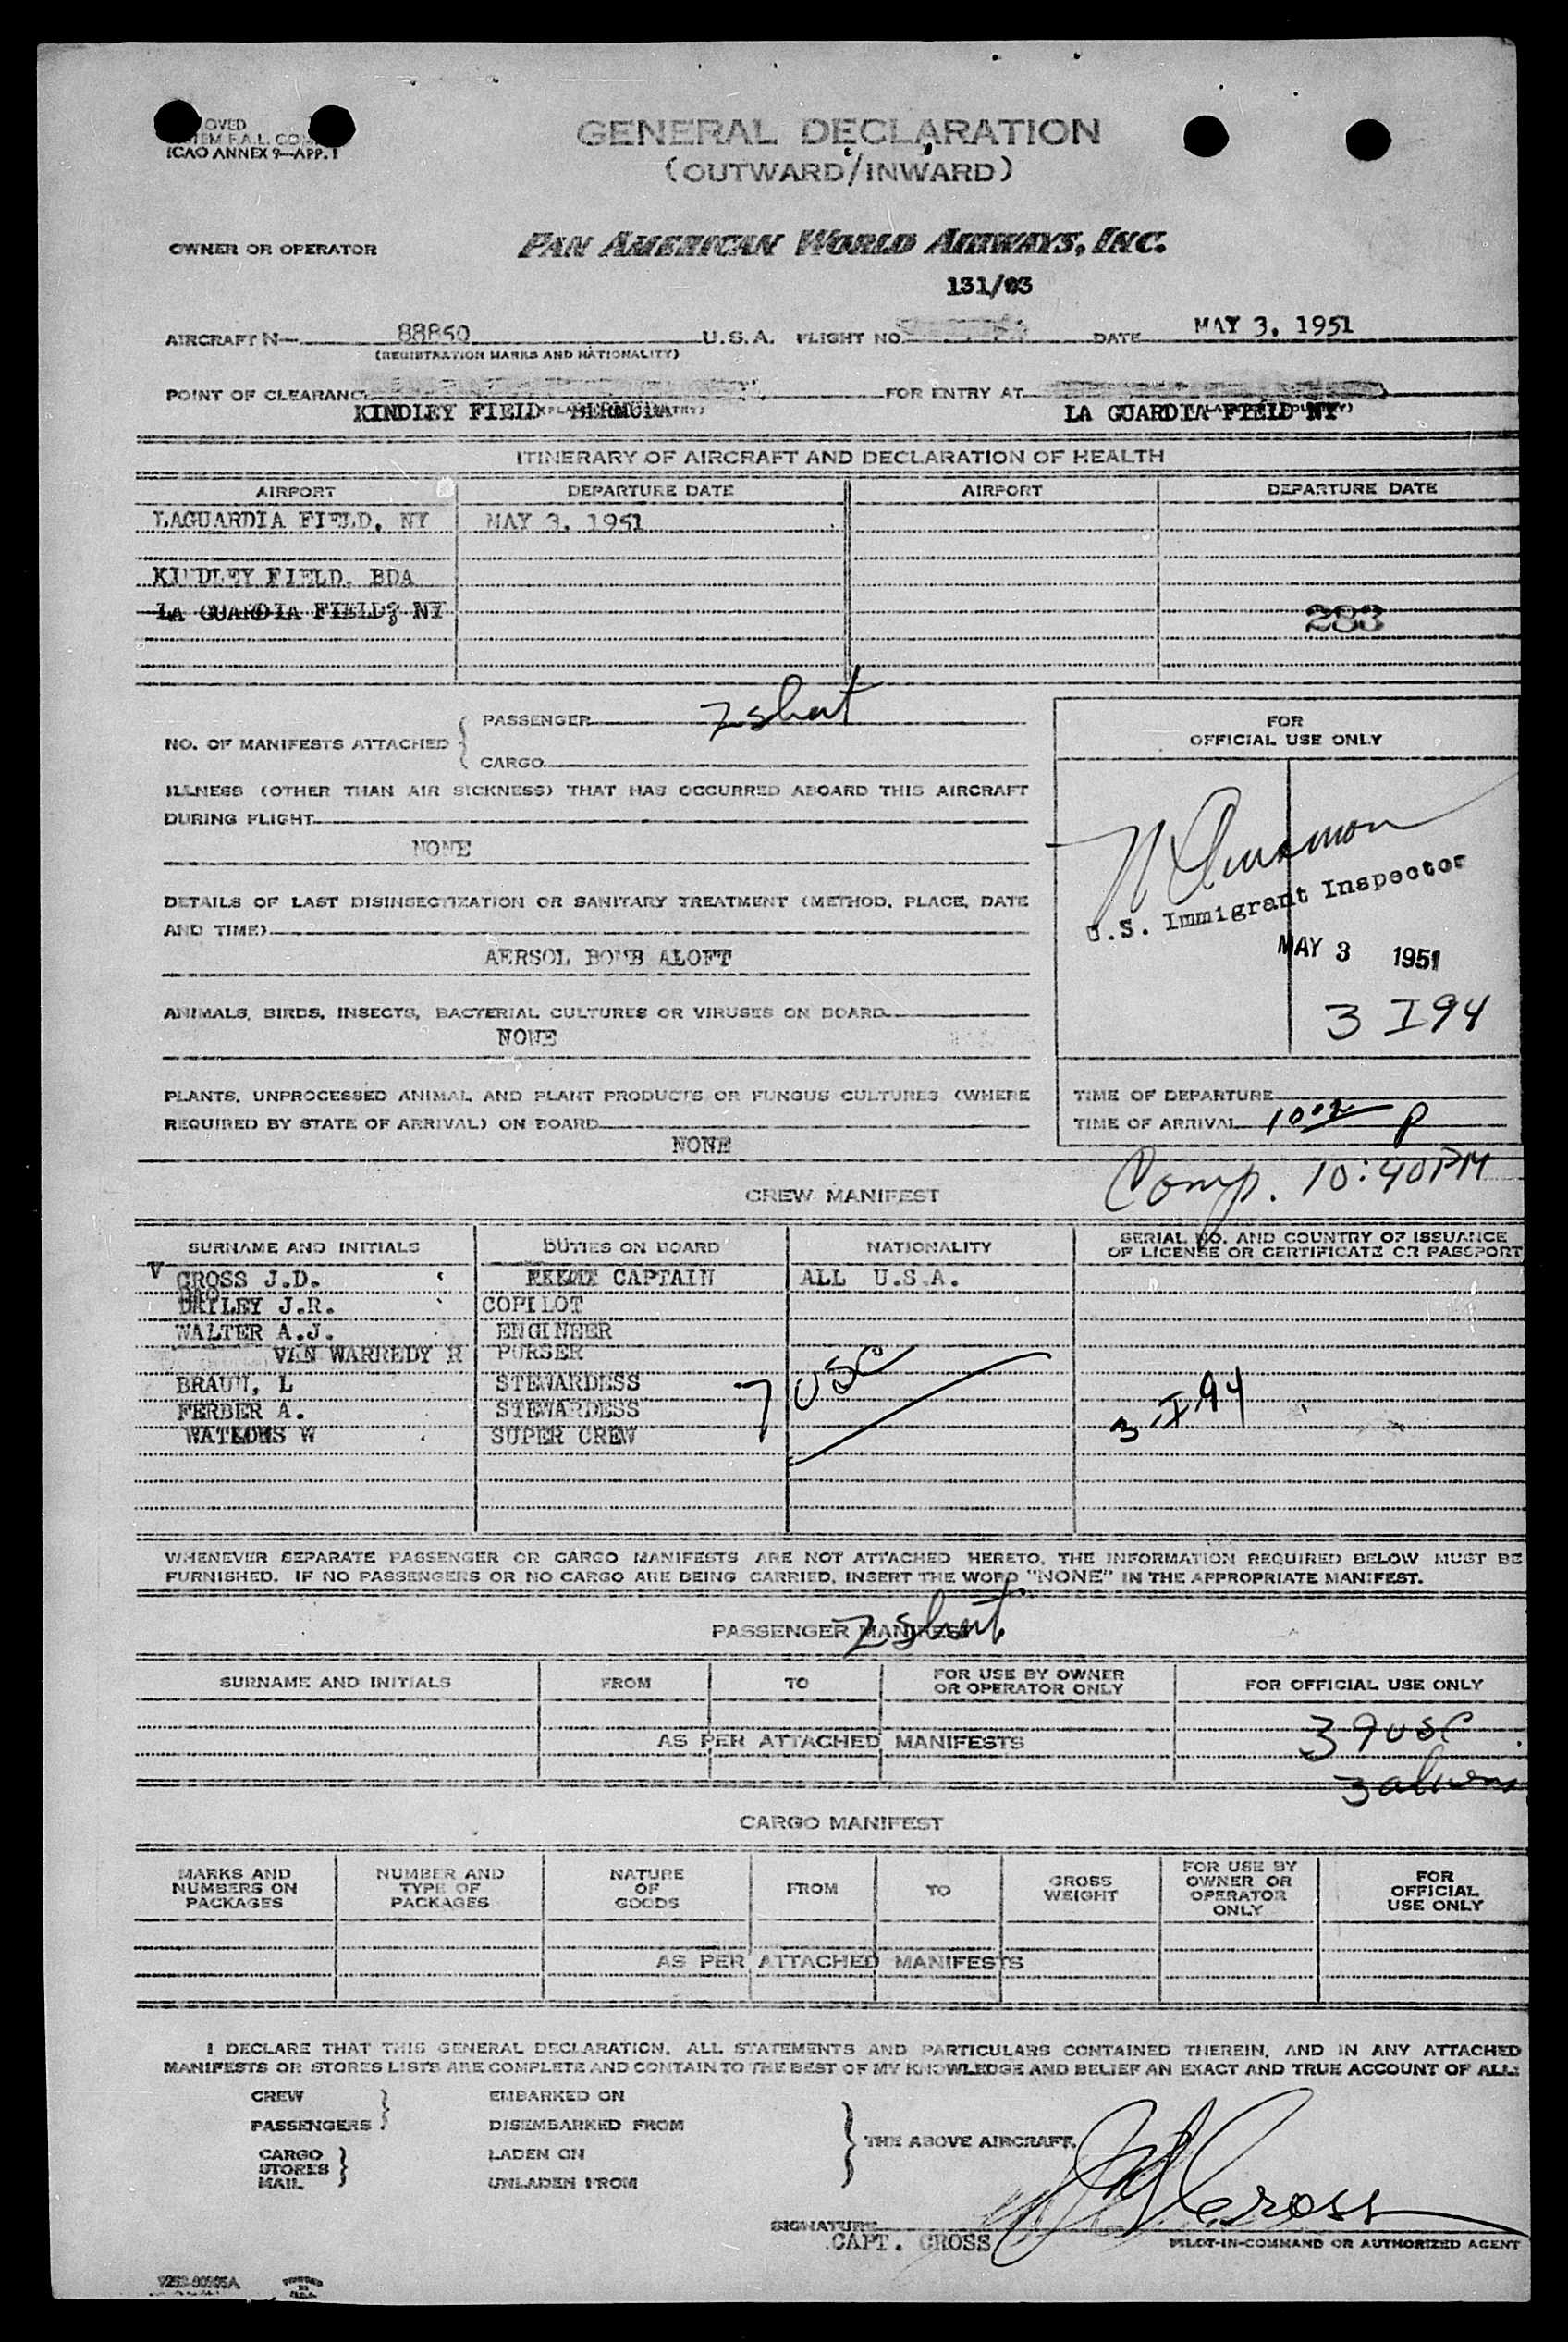 OVED
EM F.A.L. CO
ICAO ANNEX 9—APP. 1
GENERAL DECLARATION
(OUTWARD/INWARD)
OWNER OR OPERATOR PAN AMERICAN WORLD AIRWAYS, INC.
131/03
AIRCRAFT N— 88850 U.S.A. FLIGHT NO. DATE MAY 3, 1951
(REGISTRATION MARKS AND NATIONALITY)
POINT OF CLEARANCE FOR ENTRY AT
KINDLEY FIELD BERMUDA LA GUARDIA FIELD NY
ITINERARY OF AIRCRAFT AND DECLARATION OF HEALTH
AIRPORT DEPARTURE DATE AIRPORT DEPARTURE DATE
LAGUARDIA FIELD, NY MAY 3, 1951
KINDLEY FIELD, BDA
LA GUARDIA FIELD, NY
283
NO. OF MANIFESTS ATTACHED { PASSENGER 2 short
CARGO
FOR
OFFICIAL USE ONLY
ILLNESS (OTHER THAN AIR SICKNESS) THAT HAS OCCURRED ABOARD THIS AIRCRAFT
DURING FLIGHT
NONE
DETAILS OF LAST DISINSECTIZATION OR SANITARY TREATMENT (METHOD, PLACE, DATE
AND TIME)
AERSOL BOMB ALOFT
U.S. Immigrant Inspector
MAY 3 1951
3 I94
ANIMALS, BIRDS, INSECTS, BACTERIAL CULTURES OR VIRUSES ON BOARD
NONE
PLANTS, UNPROCESSED ANIMAL AND PLANT PRODUCTS OR FUNGUS CULTURES (WHERE
REQUIRED BY STATE OF ARRIVAL) ON BOARD
NONE
TIME OF DEPARTURE
TIME OF ARRIVAL 10 02 P
Comp. 10:40PM
CREW MANIFEST
SURNAME AND INITIALS DUTIES ON BOARD NATIONALITY SERIAL NO. AND COUNTRY OF ISSUANCE
OF LICENSE OR CERTIFICATE OR PASSPORT
V CROSS J.D. CAPTAIN ALL U.S.A.
DAILEY J.R. COPILOT
WALTER A.J. ENGINEER
VAN WARREDY R PURSER
BRAUN, L STEWARDESS 7 USC 3-I-94
FERBER A. STEWARDESS
W SUPER CREW
WHENEVER SEPARATE PASSENGER OR CARGO MANIFESTS ARE NOT ATTACHED HERETO, THE INFORMATION REQUIRED BELOW MUST BE
FURNISHED. IF NO PASSENGERS OR NO CARGO ARE BEING CARRIED, INSERT THE WORD "NONE" IN THE APPROPRIATE MANIFEST.
PASSENGER MANIFEST 2 short
SURNAME AND INITIALS FROM TO FOR USE BY OWNER
OR OPERATOR ONLY FOR OFFICIAL USE ONLY
39 USC
AS PER ATTACHED MANIFESTS
3 aliens
CARGO MANIFEST
MARKS AND
NUMBERS ON
PACKAGES NUMBER AND
TYPE OF
PACKAGES NATURE
OF
GOODS FROM TO GROSS
WEIGHT FOR USE BY
OWNER OR
OPERATOR
ONLY FOR
OFFICIAL
USE ONLY
AS PER ATTACHED MANIFESTS
I DECLARE THAT THIS GENERAL DECLARATION, ALL STATEMENTS AND PARTICULARS CONTAINED THEREIN, AND IN ANY ATTACHED
MANIFESTS OR STORES LISTS ARE COMPLETE AND CONTAIN TO THE BEST OF MY KNOWLEDGE AND BELIEF AN EXACT AND TRUE ACCOUNT OF ALL:
CREW EMBARKED ON
PASSENGERS DISEMBARKED FROM
THE ABOVE AIRCRAFT.
CARGO LADEN ON
STORES
MAIL UNLADEN FROM
J D Cross
SIGNATURE
CAPT. CROSS PILOT-IN-COMMAND OR AUTHORIZED AGENT
PRINTED
IN
U.S.A.